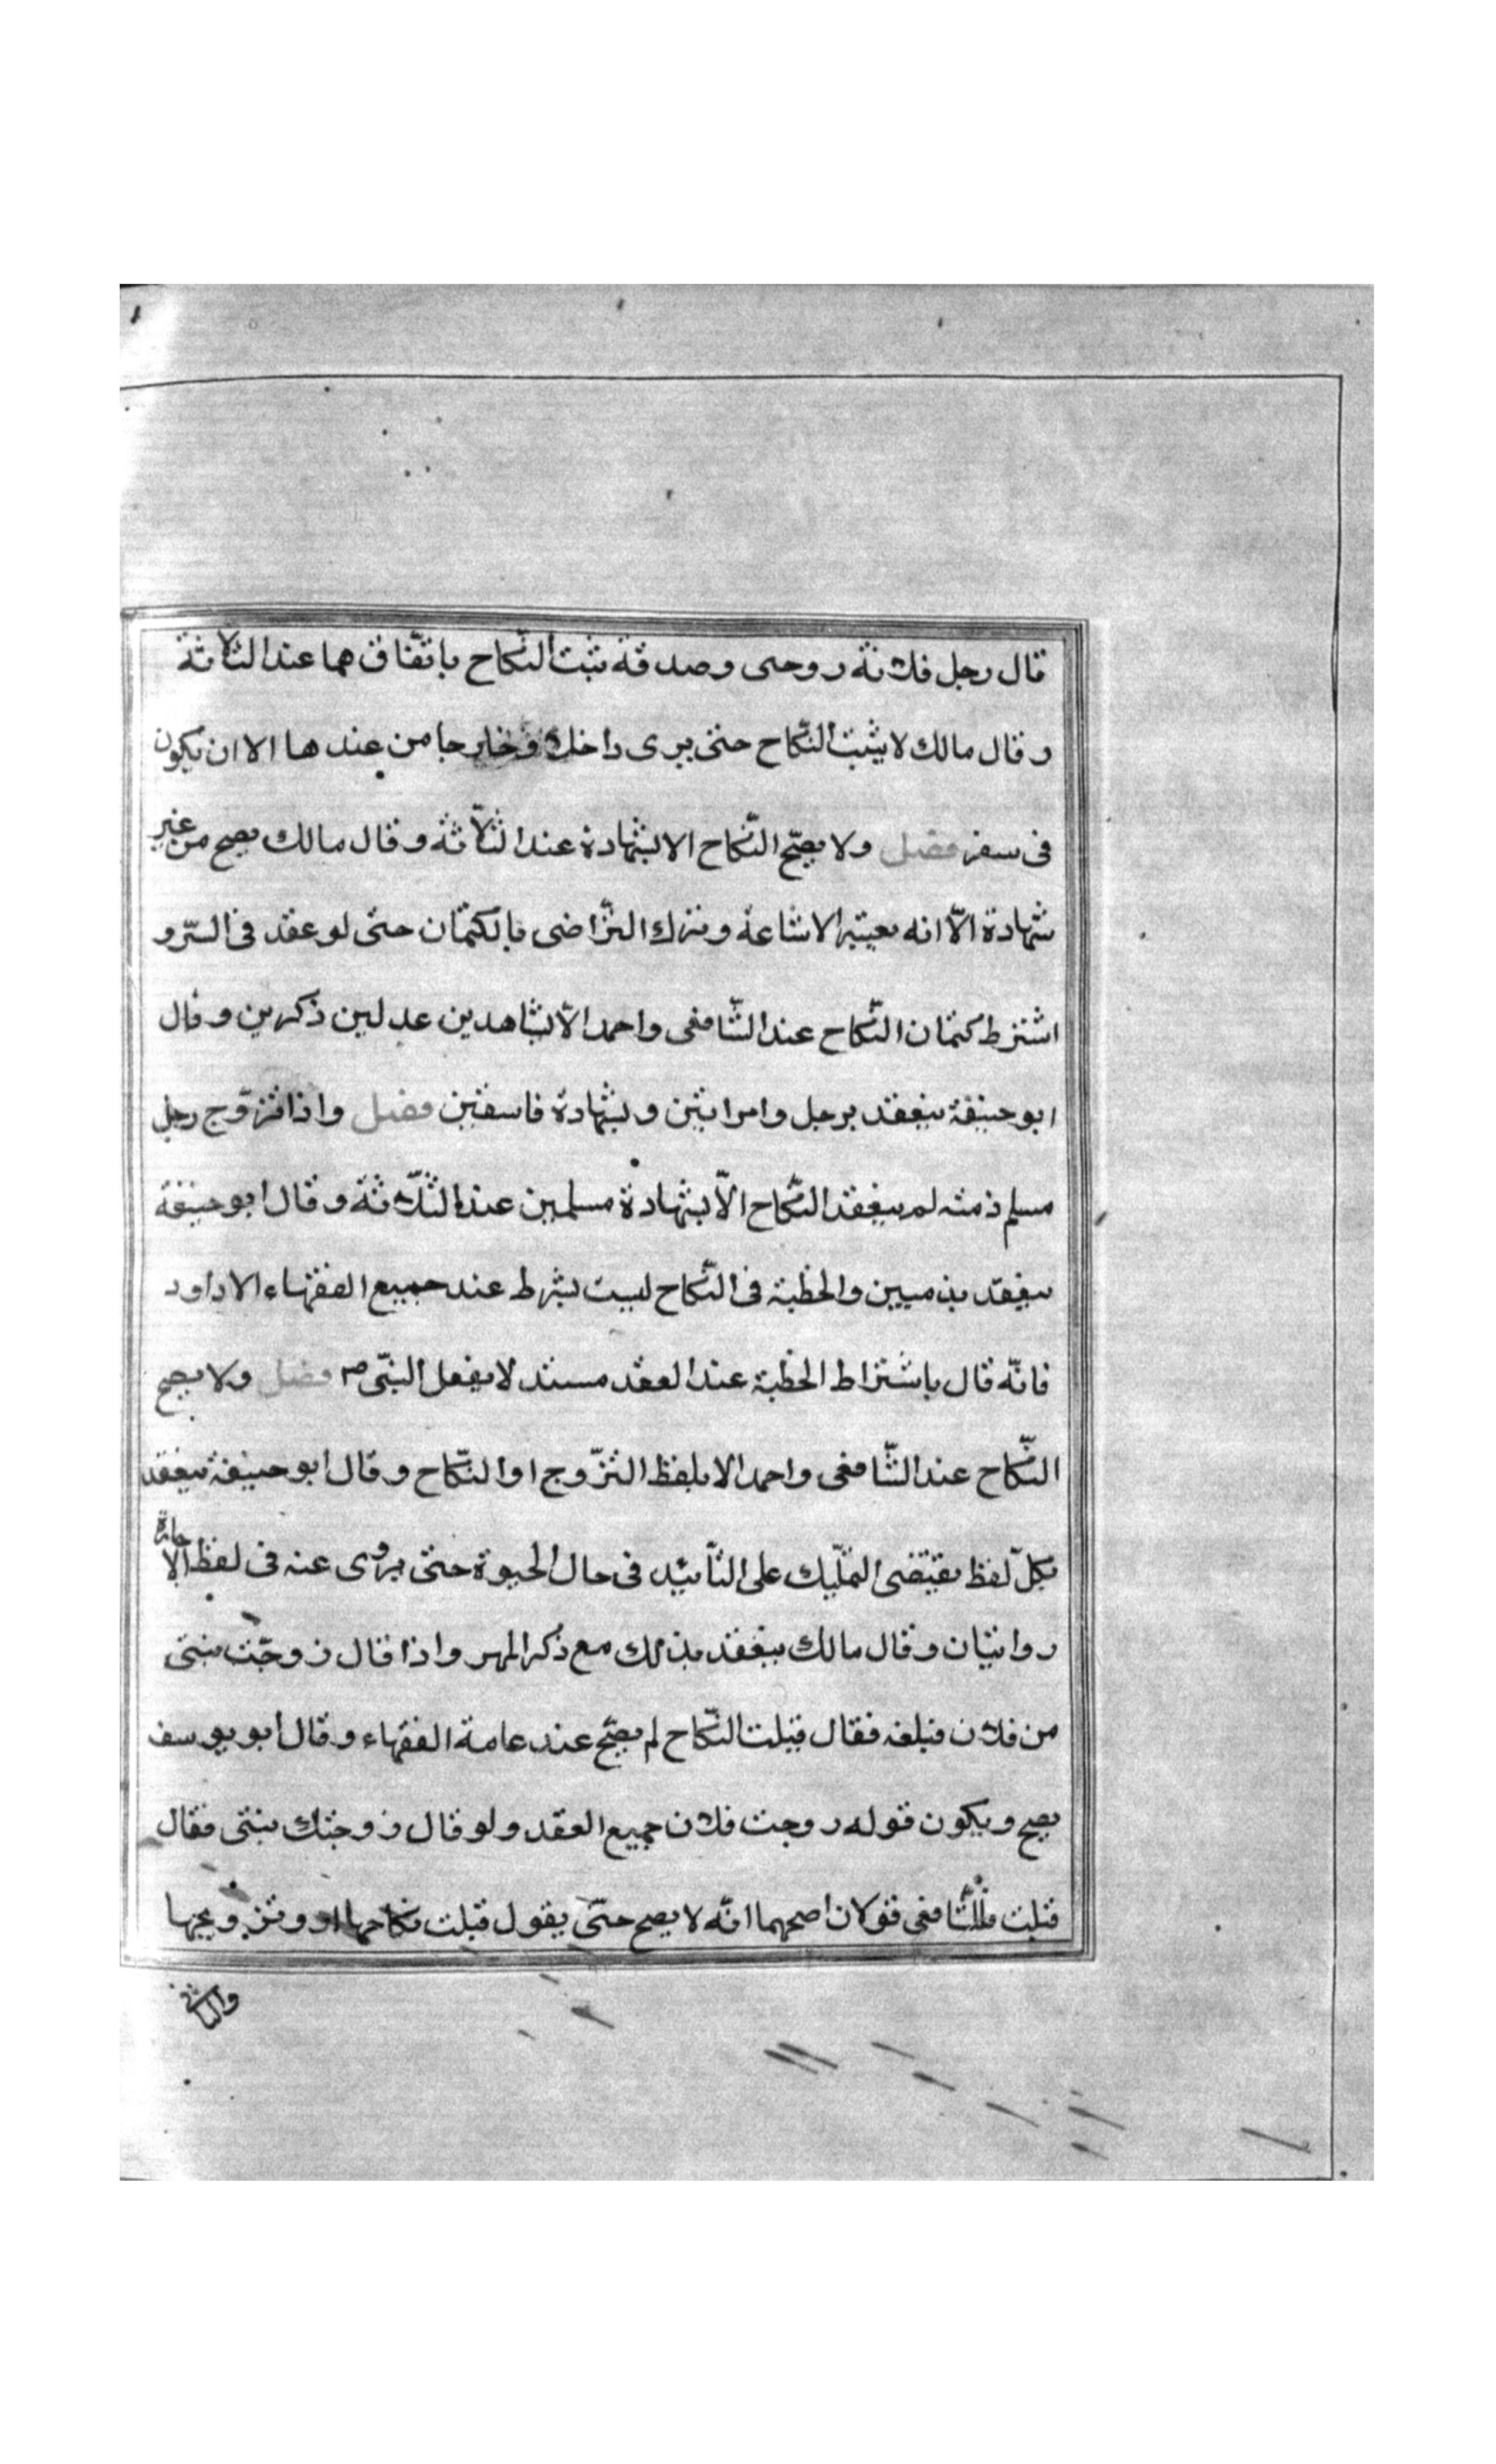 قال رجل فلانة روحى وصدقة ثبت النّكاح باتّفاق هما عند الثلاثة
وقال مالك لا يثبت النّكاح حتى يرى داخلا وخارجا من عندها الا ان يكون
فى سفر فصل ولا يصّح النّكاح الا بشهادة عند الثّلاثة وقال مالك يصح من غير
شهادة الّا انه يعتبر الاشاعة وترك التّراضى بالكتمان حتى لو عقد فى السّر و
اشترط كتمان النّكاح عند الشّافعى واحمد الّا بشاهدين عدلين ذكرين وقال
ابو حنيفة ينعقد برجل وامراتين وبشهادة فاسقين فصل واذا تزوّج رجل
مسلم ذمته لم ينعقد النّكاح الّا بشهادة مسلمين عند الثّلاثة وقال ابو حنيفة
ينعقد بذميين والخطبة فى النّكاح ليست بشرط عند جميع الفقهاء الا داود
فانّه قال باشتراط الخطبة عند العقد مستند لا بفعل النبّى ص فصل ولا يصح
النّكاح عند الشّافعى واحمد الا بلفظ التزّوج او النّكاح وقال ابو حنيفة ينعقد
بكلّ لفظ يقتضى التمّليك على التّأبيد فى حال الحيوة حتى يروى عنه فى لفظ الاجارة
روايتان وقال مالك ينعقد بذلك مع ذكر المهر واذا قال زوجّت بنتى
من فلان فبلغه فقال قبلت النّكاح لم يصّح عند عامة الفقهاء وقال ابو يوسف
يصح ويكون قوله روجت فلان جميع العقد ولو قال زوجتك بنتى فقال
قبلت فللشّافعى قولان اصحهما انّه لا يصح حتّى يقول قبلت نكاحها او وتزويجها
والثانى